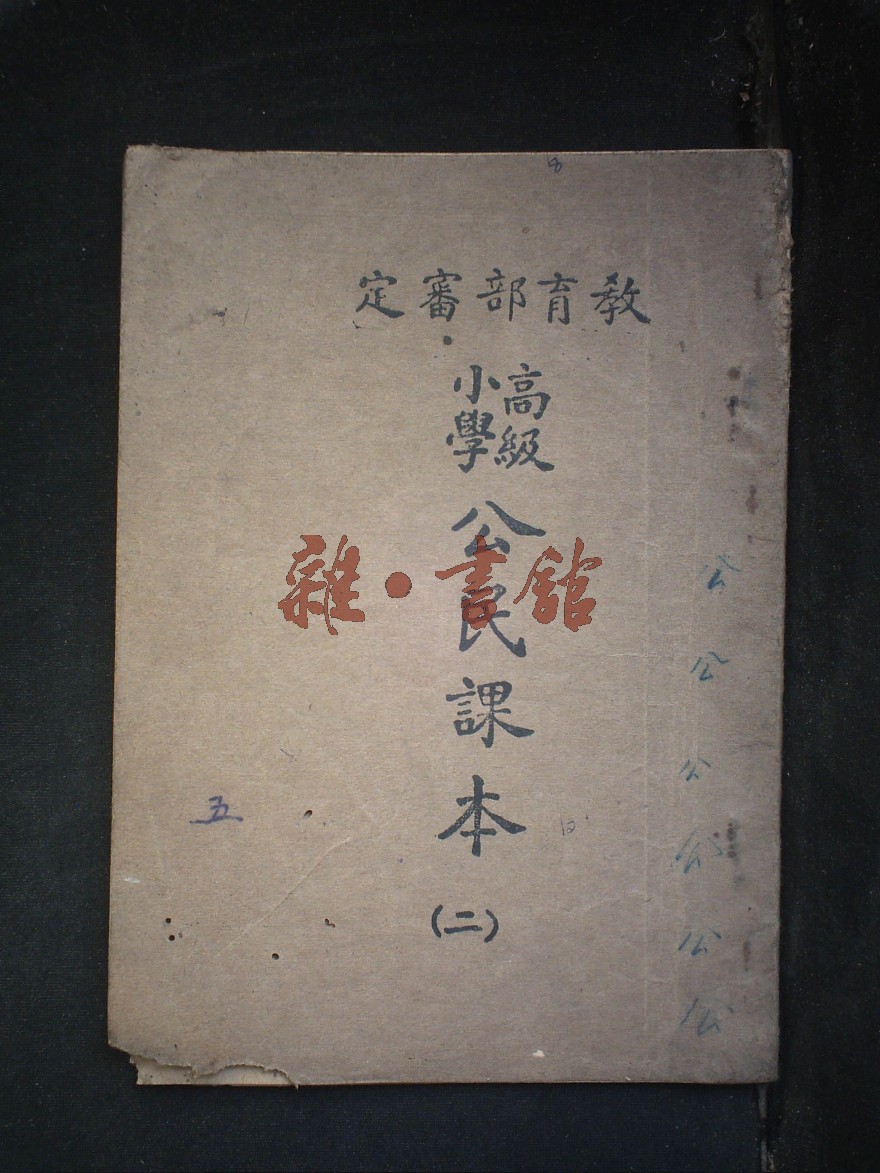 教育部審定
高級
小學
公民課本
(二)
雜·書館
五
公
公
公
公
公
公